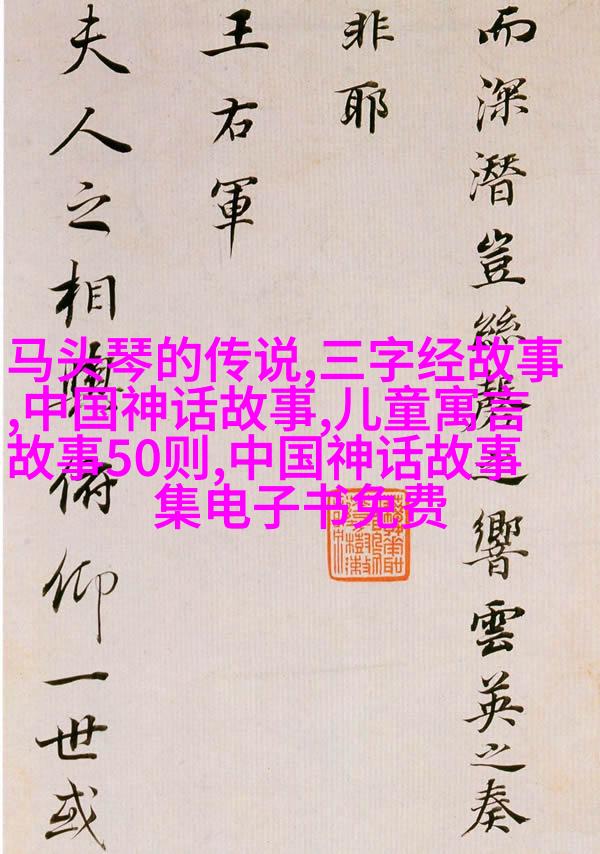 而深潛豈絲磬之響雲英之奏
非耶
王右軍
夫人之相與俯仰一世或
马头琴的传说,三字经故事
,中国神话故事,儿童寓言
故事50则,中国神话故事
集电子书免费